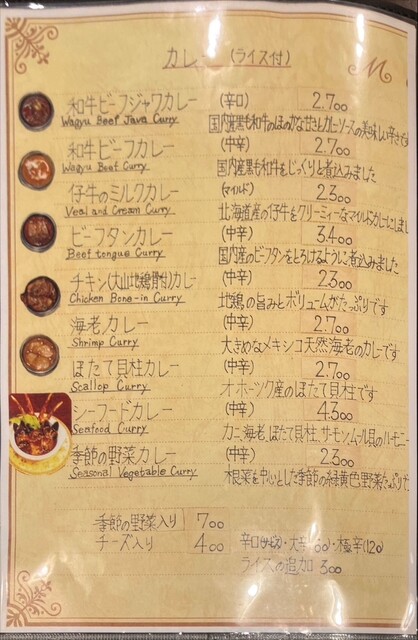 カレー (ライス付)
和牛ビーフジャワカレー (辛口) 2.700
Wagyu Beef Java Curry
国内産黒毛和牛のほのかな甘さとカレーソースの美味しい辛さです
和牛ビーフカレー (中辛) 2.700
Wagyu Beef Curry
国内産黒毛和牛をじっくりと煮込みました
仔牛のミルクカレー (マイルド) 2.300
Veal and Cream Curry
北海道産の仔牛をクリーミィーなマイルドカレーにしまし
ビーフタンカレー (中辛) 3.400
Beef tongue Curry
国内産のビーフタンをとろけるように煮込みました
チキン(大山地鶏骨付)カレー (中辛) 2.300
Chicken Bone-in Curry
地鶏の旨みとボリュームがたっぷりです
海老カレー (中辛) 2.700
Shrimp Curry
大きめなメキシコ天然海老のカレーです
ほたて貝柱カレー (中辛) 2.700
Scallop Curry
オホーツク産のほたて貝柱です
シーフードカレー (中辛) 4.300
Seafood Curry
カニ、海老、ほたて貝柱、サーモン、ムール貝のハーモニー
季節の野菜カレー (中辛) 2.300
Seasonal Vegetable Curry
根菜を中心とした季節の緑黄色野菜たっぷ
季節の野菜入り 700
チーズ入り 400
辛口 ・大辛 ・極辛(120)
ライスの追加 300